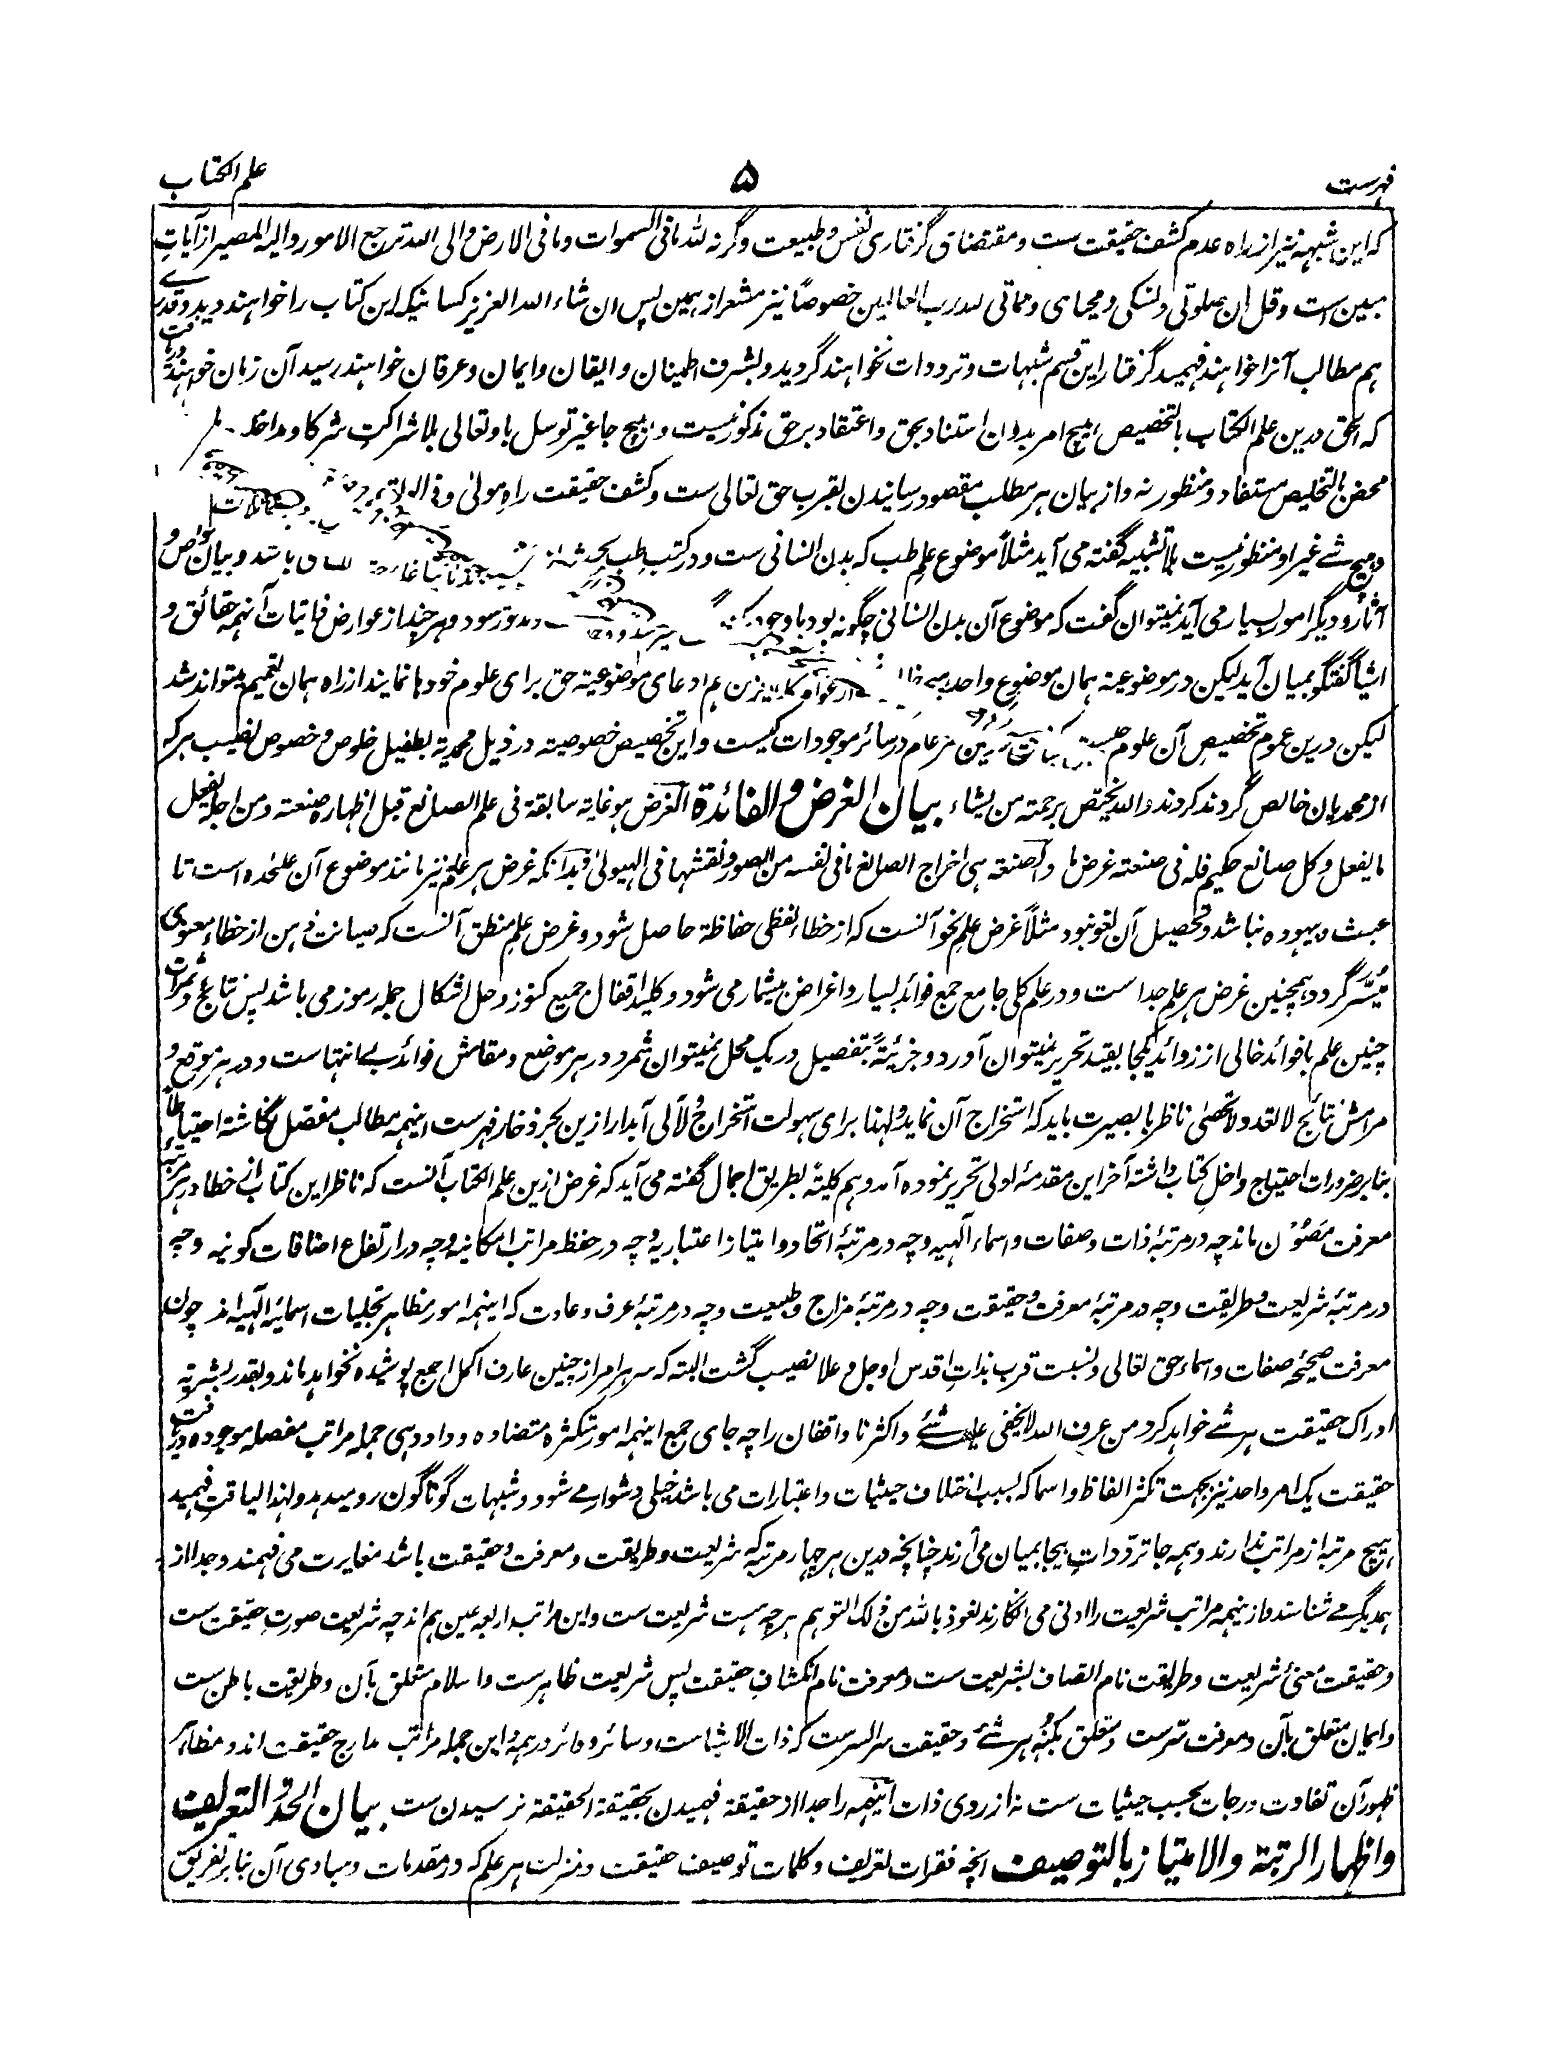 فهرست ۵ علم الکتاب
که این شبهه نیز از راه عدم کشف حقیقت ست و مقتضای گرفتاری نفس و طبیعت وگرنه لله مافی السموات و مافی الارض والی الله ترجع الامور والیه المصیر از آیات
مبین است و قل ان صلوتی ونسکی ومحیای ومماتی لله رب العالمین خصوصاً نیز مشعر از همین پس ان شاء الله العزیز کسانیکه این کتاب را خواهند دید و قدرے
هم مطالب آنرا خواهند فهمید گرفتار این قسم شبهات و ترددات نخواهند گردید و بشرف اطمینان و ایقان و ایمان و عرفان خواهند رسید آن زمان خواهند دریافت
که الحق درین علم الکتاب بالتخصیص هیچ امر بدون استناد بحق و اعتقاد بر حق مذکور نیست و هیچ جا غیر توسل باو تعالی بلا شراکت شرکا و مداخله
محض بالتخلیص مستفاد و منظور نه و از بیان هر مطلب مقصود رسانیدن بقرب حق تعالی ست و کشف حقیقت راه مولیٰ و
و هیچ شے غیر او منظور نیست بلا تشبیه گفته می آید مثلاً موضوع علم طب که بدن انسانی ست و در کتب طب بحث باشد و بیان خواص و
آثار و دیگر امور بسیار می آید نمیتوان گفت که موضوع آن بدن انسانی چگونه بود باوجود و هر چند از عوارض ذاتیات آنهمه حقائق و
اشیا گفتگو بمیان آید لیکن در موضوعیته همان موضوع واحد هم ادعای موضوعیته حق برای علوم خود ها نمایند از راه همان تعمیم میتواند شد
لیکن درین عموم تخصیص آن علوم عام در سائر موجودات کیست و این تخصیص خصوصیته در ذیل محمدیة بطفیل خلوص و خصوص نصیب هر که
از محمدیان خالص گردند کردند والله یختص برحمته من یشاء بیان الغرض والفائدة الغرض هو غایة سابقة فی علم الصانع قبل اظهاره صنعته ومن اجله یفعل
ما یفعل وکل صانع حکیم فله فی صنعته غرض ما والصنعة هی اخراج الصانع ما فی نفسه من الصور ونقشها فی الهیولیٰ بدانکه غرض هر علم نیز مانند موضوع آن علحده است تا
عبث و بیهوده نباشد و تحصیل آن لغو نبود مثلاً غرض علم نحو آنست که از خطاء لفظی حفاظة حاصل شود و غرض علم منطق آنست که صیانت ذهن از خطاء معنوی
میسر گردد و همچنین غرض هر علم جداست و در علم کلی جامع جمیع فوائد بسیار و اغراض بیشمار می شود و کلید اقفال جمیع کنوز و حل اشکال جمله رموز می باشد پس نتائج و ثمرات
چنین علم با فوائد خالی از زوائد یکجا بقید تحریر نمیتوان آورد و جزئیةً بتفصیل در یک محل نمیتوان شمرد و در هر موضع و مقامش فوائد بے انتهاست و در هر موقع و
مرامش نتائج لا تعد ولا تحصیٰ ناظر با بصیرت باید که استخراج آن نماید و لهذا برای سهولت استخراج لآلی آبدار ازین بحر ذخار فهرست اینهمه مطالب مفصل نگاشته احتیاطاً
بنا بر ضرورات احتیاج داخل کتاب داشته آخر این مقدمۀ اولی تحریر نموده آمد و هم کلیةً بطریق اجمال گفته می آید که غرض ازین علم الکتاب آنست که ناظر این کتاب از خطا در هر مرتبه
معرفت مصئون ماند چه در مرتبۀ ذات و صفات و اسماء الٰهیه و چه در مرتبۀ اتحاد و امتیاز اعتباریه و چه در حفظ مراتب امکانیه و چه در ارتفاع اضافات کونیه و چه
در مرتبۀ شریعت و طریقت و چه در مرتبۀ معرفت و حقیقت و چه در مرتبۀ مزاج و طبیعت و چه در مرتبۀ عرف و عادت که اینهمه امور مظاهر تجلیات اسمائیه الٰهیه اند چون
معرفت صحیحۀ صفات و اسماء حق تعالی و نسبت قرب بذات اقدس او جل و علا نصیب گشت البته که سر هر امر از چنین عارف اکمل اجمع پوشیده نخواهد ماند و بقدر بشریه
ادراک حقیقت هر شے خواهد کرد من عرف الله لا یخفی علیه شئ و اکثر ناواقفان را چه جای جمع اینهمه امور متکثره متضاده و وادهی جمله مراتب مفصله موجوده دریافت
حقیقت یک امر واحد نیز بجهت تکثر الفاظ و اسما که بسبب اختلاف حیثیات و اعتبارات می باشد خیلی دشوار مے شود و شبهات گوناگون رو میدهد و لهذا لیاقت فهمید
هیچ مرتبه از مراتب ندارند و همه جا ترددات بیجا بمیان می آرند چنانچه درین هر چهار مرتبه که شریعت و طریقت و معرفت و حقیقت باشد مغایرت می فهمند و جدا از
همدیگر مے شناسند و از ینهمه مراتب شریعت را ادنی می انگارند نعوذ بالله من ذلک التوهم هر چه هست شریعت ست و این مراتب اربعه عین هم اند چه شریعت صورت حقیقت ست
و حقیقت معنی شریعت و طریقت نام اتصاف بشریعت ست و معرفت نام انکشاف حقیقت پس شریعت ظاهرست و اسلام متعلق بآن و طریقت باطن ست
و ایمان متعلق بآن و معرفت سرست و متعلق بکنه هر شئے و حقیقت سر السرست که ذات الاشیاست و سائر و دائر در همه و این جمله مراتب مدارج حقیقت اند و مظاهر
ظهور آن تفاوت درجات بحسب حیثیات ست نه از روی ذات اینهمه را جدا از حقیقة فهمیدن بحقیقة الحقیقة نرسیدن ست بیان الحد والتعریف
واظهار الرتبة والامتیاز بالتوصیف انچه فقرات تعریف و کلمات توصیف حقیقت و منزلت هر علم که در مقدمات و مبادی آن بنا بر تفریق